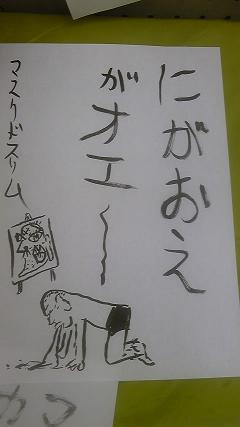 にがおえ
がオエ〜〜
マスクドスリム